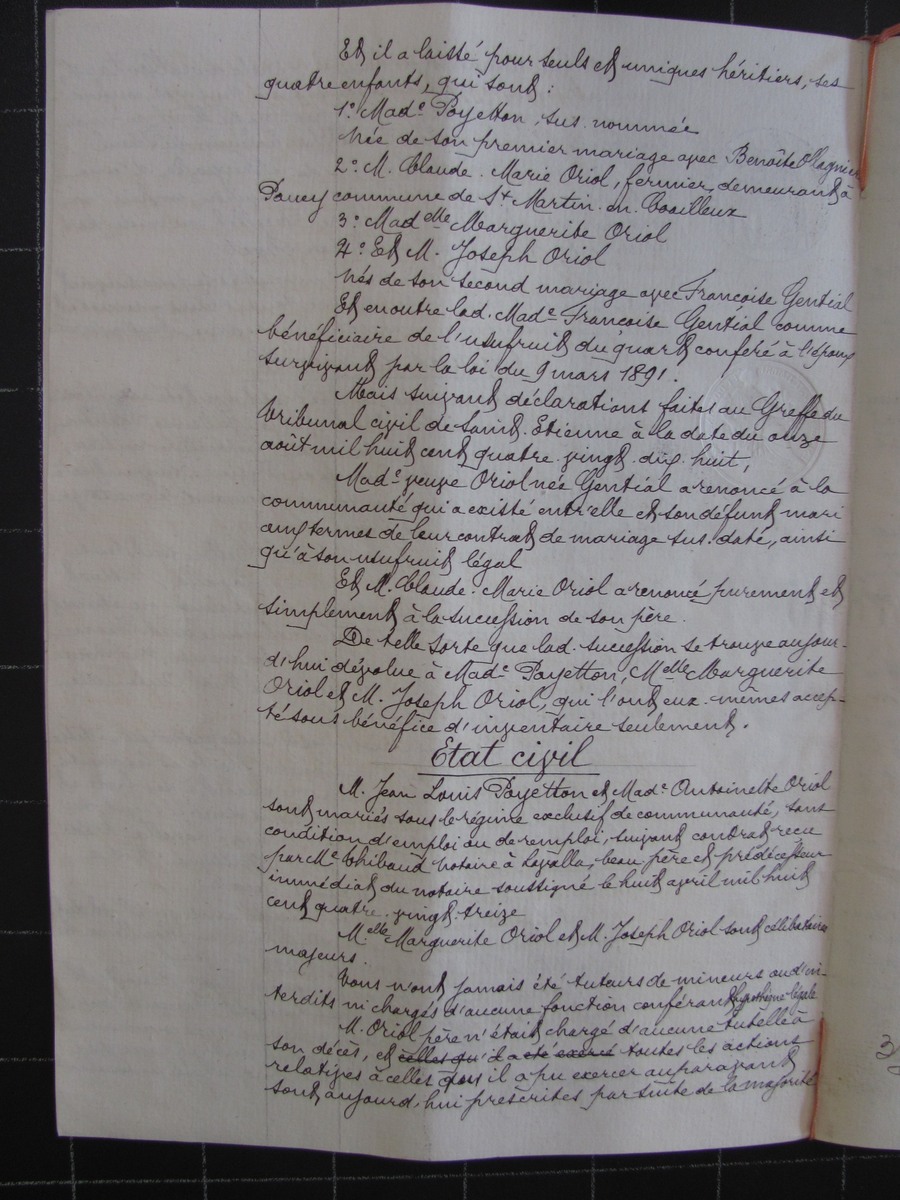 Et il a laissé pour seuls et uniques héritiers, ses
quatre enfants, qui sont :
1° Made Payetton, sus. nommée
Née de son premier mariage avec Benoîte Ollagnier
2° M. Claude. Marie Oriol, fermier, demeurant à
commune de St Martin. en. Coailleux
3° Madelle Marguerite Oriol
4° Et M. Joseph Oriol
Nés de son second mariage avec Francoise Gential
Et en outre lad. Made Francoise Gential comme
bénéficiaire de l'usufruit du quart conféré à l'époux
survivant par la loi du 9 mars 1891.
Mais suivant déclarations faites au Greffe du
tribunal civil de Saint. Etienne à la date du onze
août mil huit cent quatre. vingt. dix. huit,
Made veuve Oriol née Gential a renoncé à la
communauté qui a existé entr'elle et son défunt mari
aux termes de leur contrat de mariage sus. daté, ainsi
qu'à son usufruit légal
Et M. Claude. Marie Oriol a renoncé purement et
simplement à la succession de son père.
De telle sorte que lad. succession se trouve aujour-
d'hui dévolue à Made Payetton, Melle Marguerite
Oriol et M. Joseph Oriol, qui l'ont eux. mêmes accep-
té sous bénéfice d'inventaire seulement.
Etat civil
M. Jean Louis Payetton et Made Antoinette Oriol
sont mariés sous le régime exclusif de communauté, sans
condition d'emploi ou de remploi, suivant contrat recu
par Me Thibaud notaire à Lavalla, beau père et prédécesseur
immédiat du notaire soussigné le huit avril mil huit
cent quatre. vingt. treize
Melle Marguerite Oriol et M. Joseph Oriol sont célibataires
majeurs.
Tous n'ont jamais été tuteurs de mineurs ou d'in-
terdits ni chargés d'aucune fonction conférant hypothèque légale
M. Oriol père n'était chargé d'aucune tutelle à
son décès, et celles qu'il a été exercé toutes les actions
relatives à celles qu'il a pu exercer auparavant
sont aujourd'hui prescrites par suite de la majorité
3